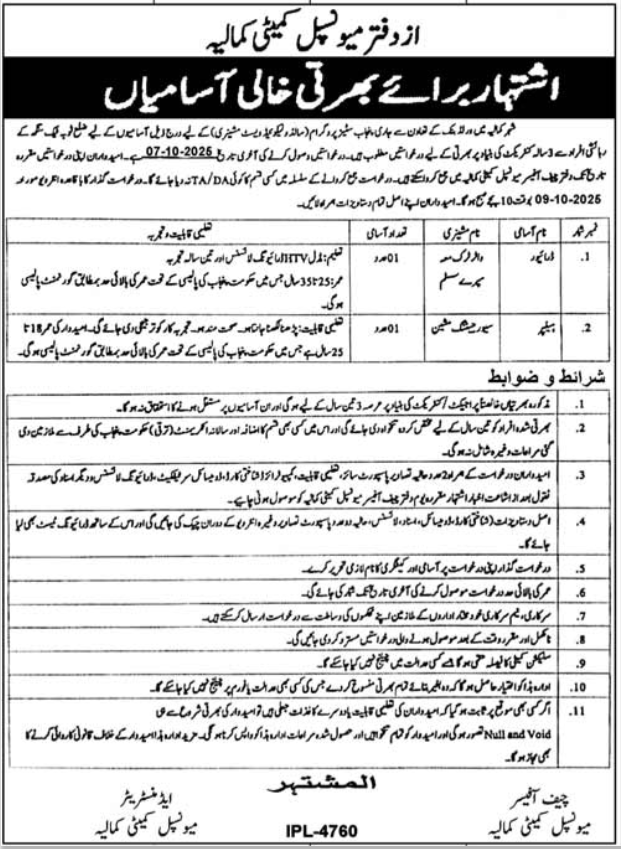 از دفتر میونسپل کمیٹی کمالیہ
اشتہار برائے بھرتی خالی آسامیاں
شہر کمالیہ میں ورلڈ بنک کے تعاون سے جاری پنجاب سٹیز پروگرام (سالڈ ولیکویڈ ویسٹ مشینری) کے لیے درج ذیل آسامیوں کے لیے ضلع ٹوبہ ٹیک سنگھ کے
رہائشی افراد سے 3 سالہ کنٹریکٹ کی بنیاد پر بھرتی کے لیے درخواستیں مطلوب ہیں۔ درخواستیں وصول کرنے کی آخری تاریخ 07-10-2025 ہے۔ امیدواران اپنی درخواستیں مقررہ
تاریخ تک دفتر چیف آفیسر میونسپل کمیٹی کمالیہ میں جمع کرواسکتے ہیں۔ درخواست جمع کروانے کے سلسلہ میں کسی قسم کا کوئی TA/DA نہ دیا جائے گا۔ درخواست گذار کا باقاعدہ انٹرویو مورخہ
09-10-2025 بوقت 10 بجے صبح ہوگا۔ امیدواران اپنے اصل تمام دستاویزات ہمراہ لائیں۔
نمبر شمار نام آسامی نام مشینری تعداد آسامی تعلیمی قابلیت و تجربہ
1. ڈرائیور واٹر ٹرک معہ سپرے سسٹم 01 عدد تعلیم: مڈل HTV ڈرائیونگ لائسنس اور تین سالہ تجربہ
عمر: 25 تا 35 سال جس میں حکومت پنجاب کی پالیسی کے تحت عمر کی بالائی حد بمطابق گورنمنٹ پالیسی
ہوگی۔
2. ہیلپر سیور جیٹنگ مشین 01 عدد تعلیمی قابلیت: پڑھنا لکھنا جانتا ہو۔ صحت مند ہو۔ تجربہ کار کو ترجیح دی جائے گی۔ امیدوار کی عمر 18 تا
25 سال ہے جس میں حکومت پنجاب کی پالیسی کے تحت عمر کی بالائی حد بمطابق گورنمنٹ پالیسی ہوگی۔
شرائط و ضوابط
1. مذکورہ بھرتیاں خالصتاً پراجیکٹ / کنٹریکٹ کی بنیاد پر عرصہ 3 تین سال کے لیے ہوگی اور ان آسامیوں پر مستقل ہونے کا استحقاق نہ ہوگا۔
2. بھرتی شدہ افراد کو تین سال کے لیے مختص کردہ تنخواہ دی جائے گی اور اس میں کسی بھی قسم کا اضافہ اور سالانہ انکریمنٹ (ترقی) حکومت پنجاب کی طرف سے ملازمین دی
گئی مراعات وغیرہ شامل نہ ہوگی۔
3. امیدواران درخواست کے ہمراہ 2 عدد حالیہ تصاویر پاسپورٹ سائز، تعلیمی قابلیت، کمپیوٹرائزڈ شناختی کارڈ، ڈومیسائل سرٹیفکیٹ، ڈرائیونگ لائسنس، ودیگر اسناد کی مصدقہ
نقول بعد از اشاعت اخبار اشتہار مقررہ یوم دفتر چیف آفیسر میونسپل کمیٹی کمالیہ کو موصول ہونی چاہیے۔
4. اصل دستاویزات (شناختی کارڈ، ڈومیسائل، اسناد، لائسنس، حالیہ دو عدد پاسپورٹ تصاویر وغیرہ انٹرویو کے دوران چیک کی جائیں گی اور اس کے ساتھ ڈرائیونگ ٹیسٹ بھی لیا
جائے گا۔
5. درخواست گذار اپنی درخواست پر آسامی اور کیٹگری کا نام لازمی تحریر کرے۔
6. عمر کی بالائی حد درخواست موصول کرنے کی آخری تاریخ تک شمار کی جائے گی۔
7. سرکاری، نیم سرکاری خود مختار اداروں کے ملازمین اپنے محکموں کی وساطت سے درخواست ارسال کرسکتے ہیں۔
8. نامکمل اور مقررہ وقت کے بعد موصول ہونے والی درخواستیں مسترد کردی جائیں گی۔
9. سلیکشن کمیٹی کا فیصلہ حتمی ہوگا جسے کسی عدالت میں چیلنج نہیں کیا جاسکے گا۔
10. ادارہ ہذا کو اختیار حاصل ہوگا کہ وہ بغیر بتائے تمام بھرتی منسوخ کردے جس کی کسی بھی عدالت یا فورم پر چیلنج نہیں کیا جاسکے گا۔
11. اگر کسی بھی موقع پر ثابت ہوگیا کہ امیدواران کی تعلیمی قابلیت یا دوسرے کاغذات جعلی ہیں تو امیدوار کی بھرتی شروع سے ہی
Null and Void تصور ہوگی اور امیدوار کو تمام تنخواہیں اور حصول شدہ مراعات ادارہ ہذا کو واپس کرنا ہوگی۔ مزید ادارہ ہذا امیدوار کے خلاف قانونی کاروائی کرنے کا
بھی مجاز ہوگا۔
المشتہر
چیف آفیسر ایڈمنسٹریٹر
میونسپل کمیٹی کمالیہ میونسپل کمیٹی کمالیہ
IPL-4760